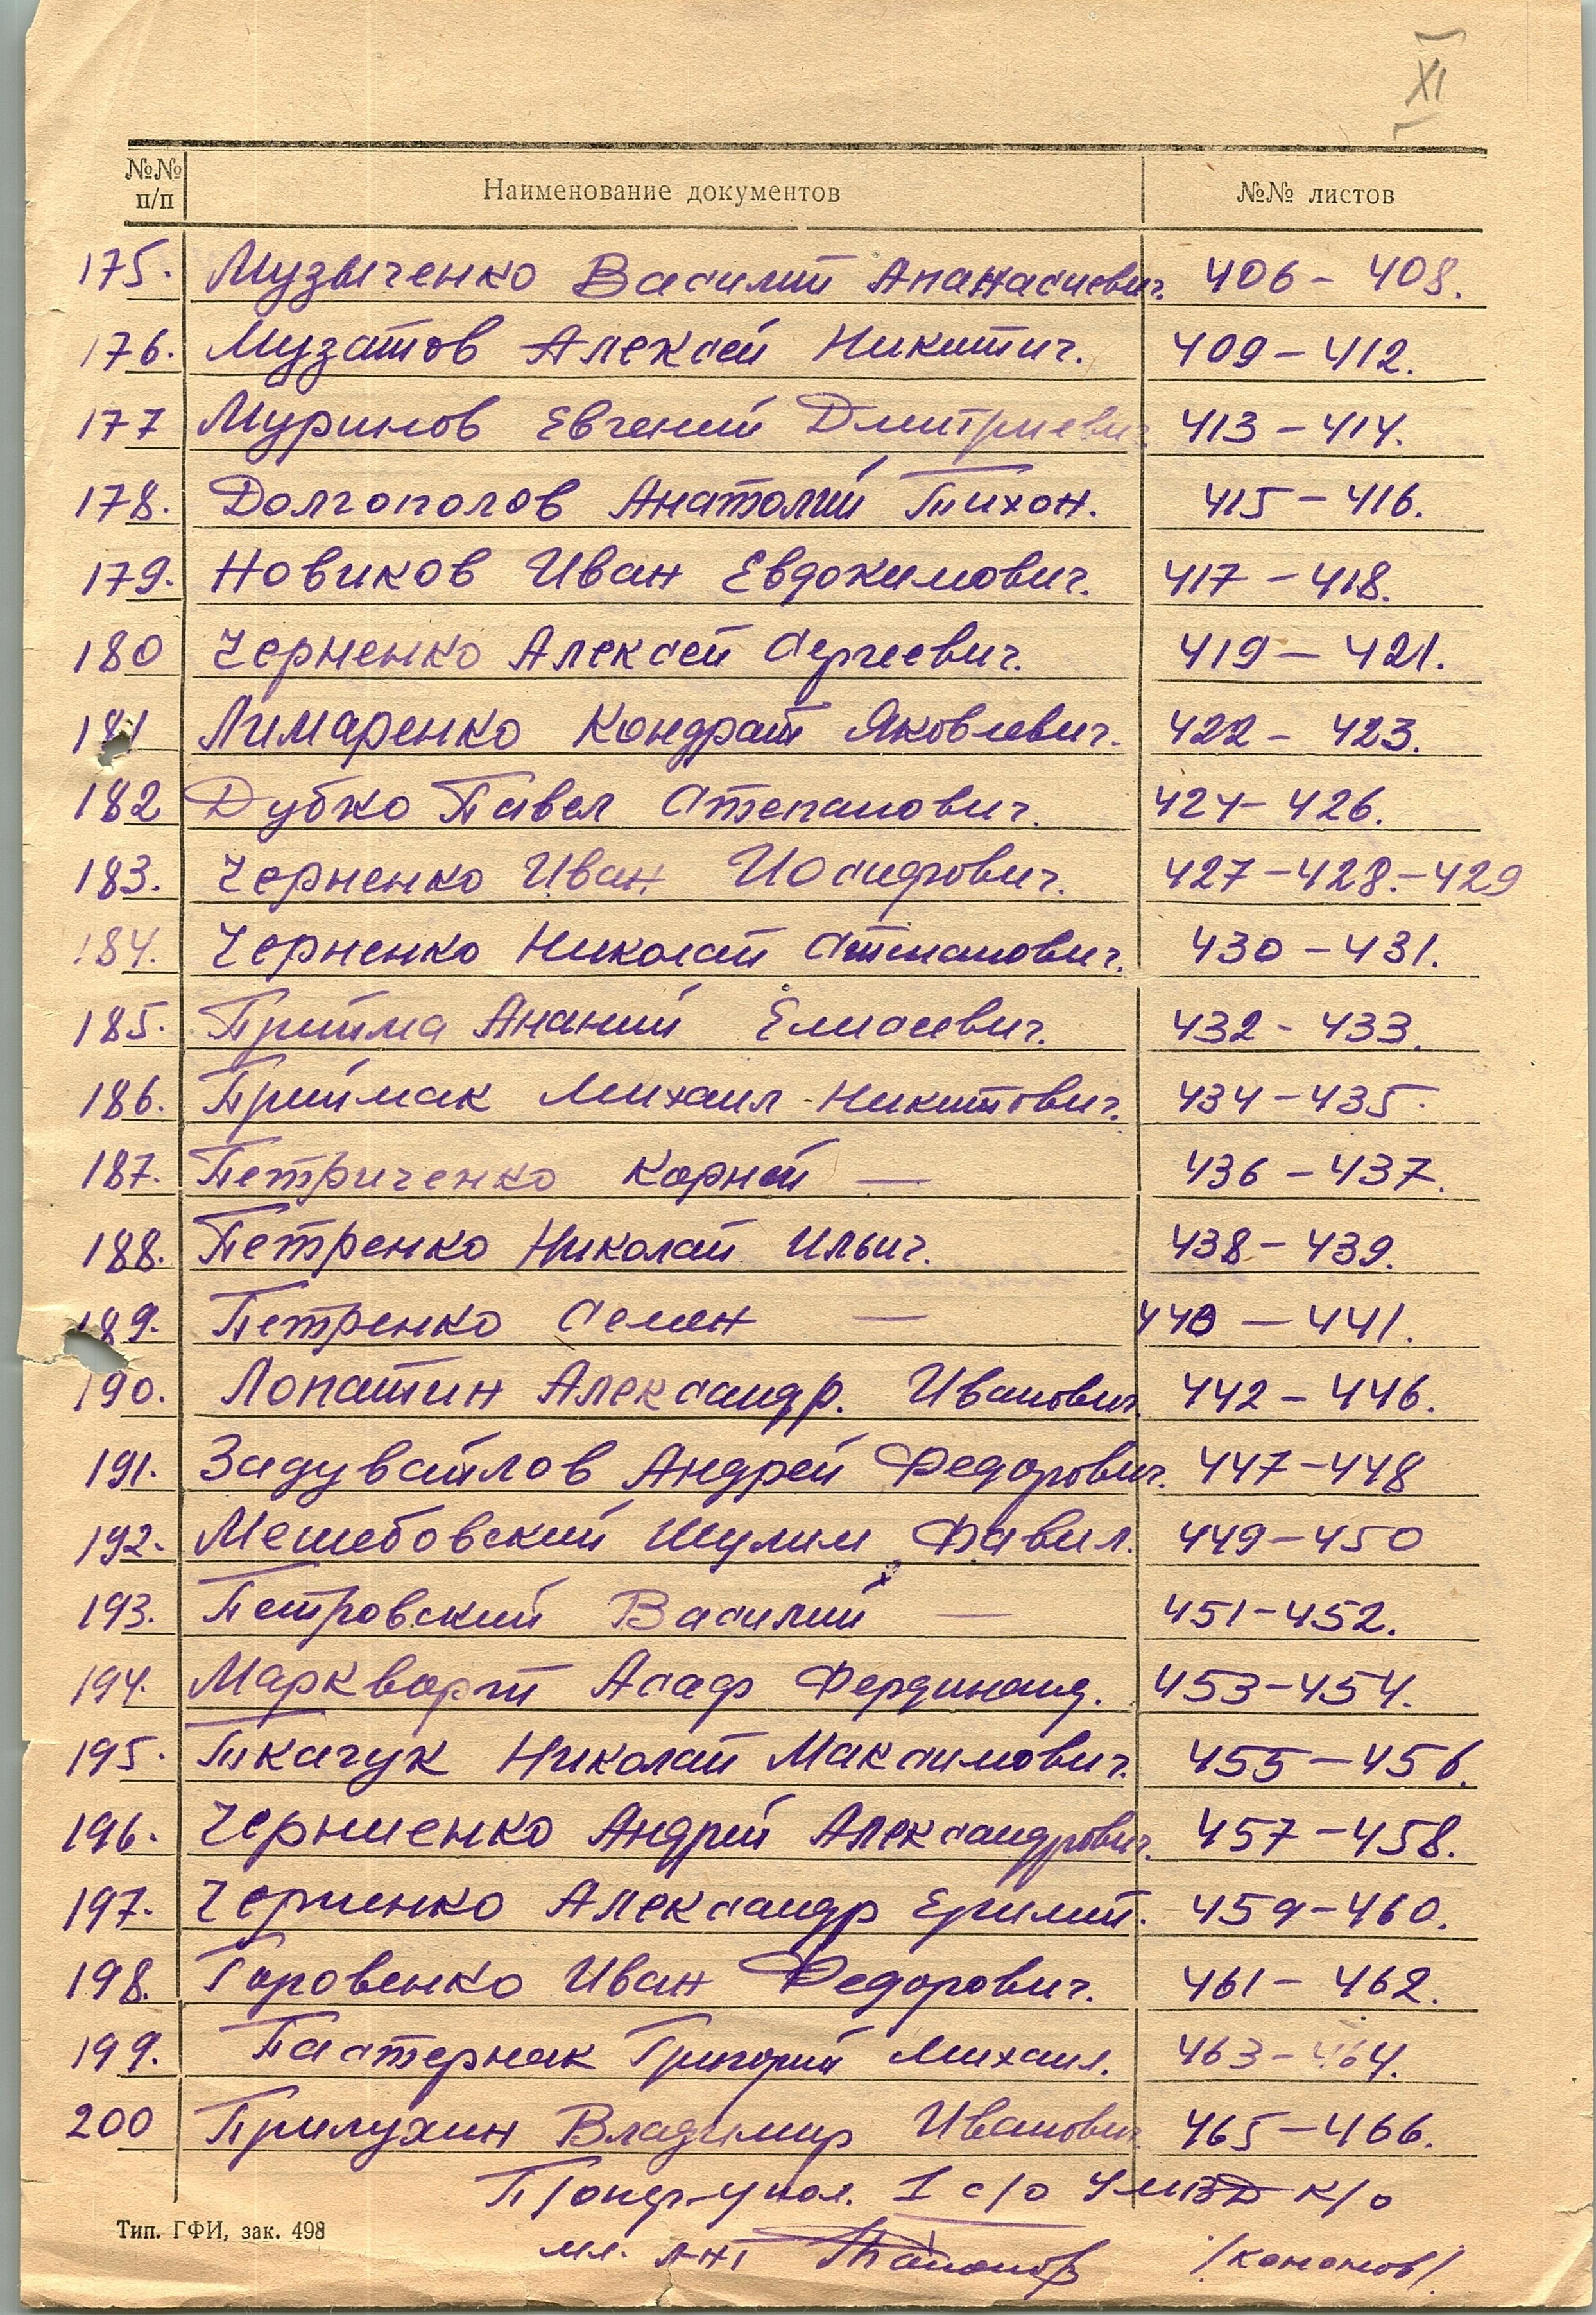 XI
№№ п/п Наименование документов №№ листов
175. Музыченко Василий Апанасиевич. 406 - 408.
176. Музатов Алексей Никитич. 409 - 412.
177 Муринов Евгений Дмитриевич 413 - 414.
178. Долгополов Анатолий Тихон. 415 - 416.
179. Новиков Иван Евдокимович. 417 - 418.
180 Черненко Алексей Сергеевич. 419 - 421.
181 Лимаренко Кондрат Яковлевич. 422 - 423.
182 Дубко Павел Степанович. 424 - 426.
183. Черненко Иван Иосифович. 427 - 428. - 429
184. Черненко Николай Степанович. 430 - 431.
185. Прийма Ананий Елисеевич. 432 - 433.
186. Приймак Михаил Никитович. 434 - 435.
187. Петриченко Корней — 436 - 437.
188. Петренко Николай Ильич. 438 - 439.
189. Петренко Семен — 440 - 441.
190. Лопатин Александр. Иванович. 442 - 446.
191. Задувайлов Андрей Федорович. 447 - 448
192. Мешебовский Шулим Файвил. 449 - 450
193. Петровский Василий — 451 - 452.
194. Маркварт Асаф Фердинанд. 453 - 454.
195. Ткачук Николай Максимович. 455 - 456.
196. Черниенко Андрей Александрович. 457 - 458.
197. Черненко Александр Ермил. 459 - 460.
198. Горовенко Иван Федорович. 461 - 462.
199. Пастернак Григорий Михаил. 463 - 464.
200 Прилухин Владимир Иванович 465 - 466.
П/опер-упол. 1 с/о УМВД К/О
мл. л-нт /Кононов/.
Тип. ГФИ, зак. 498